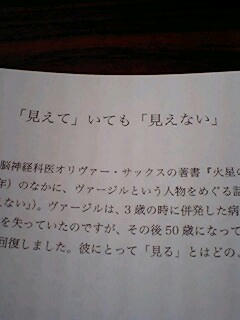 「見えて」いても「見えない」
脳神経科医オリヴァー・サックスの著書『火星の
年）のなかに、ヴァージルという人物をめぐる話
えない」）。ヴァージルは、３歳の時に併発した病
を失っていたのですが、その後50歳になって
回復しました。彼にとって「見る」とはどの、